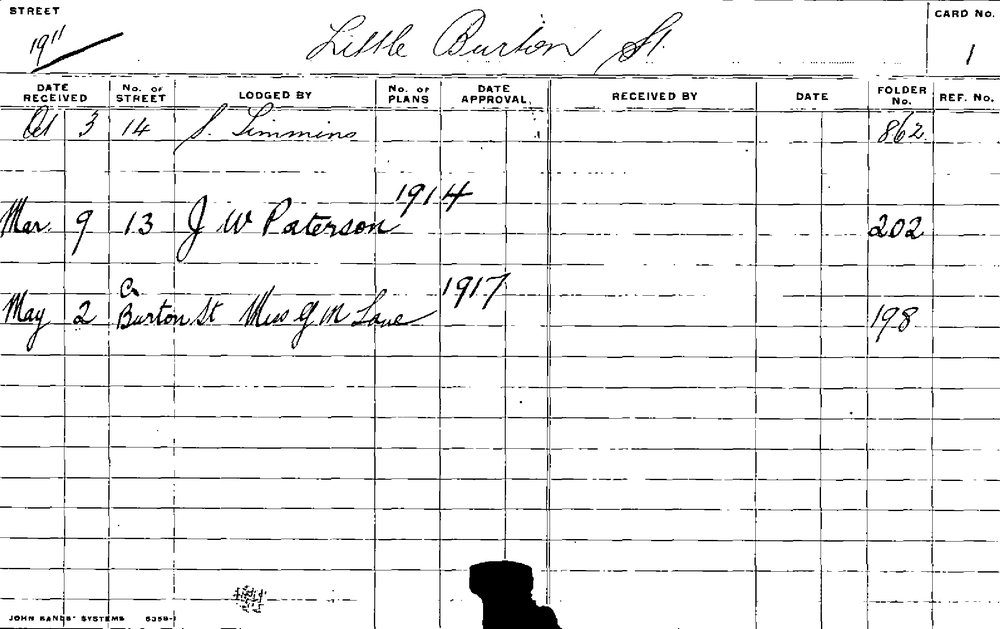 STREET
CARD No.
1911
Little Burton St.
1
DATE RECEIVED No. OF STREET LODGED BY No. OF PLANS DATE APPROVAL. RECEIVED BY DATE FOLDER No. REF. No.
Oct 3 14 S. Simmins 862
1914
Mar. 9 13 J W Paterson 202
1917
Cr
May 2 Burton St Miss G M Lane 198
JOHN SANDS' SYSTEMS